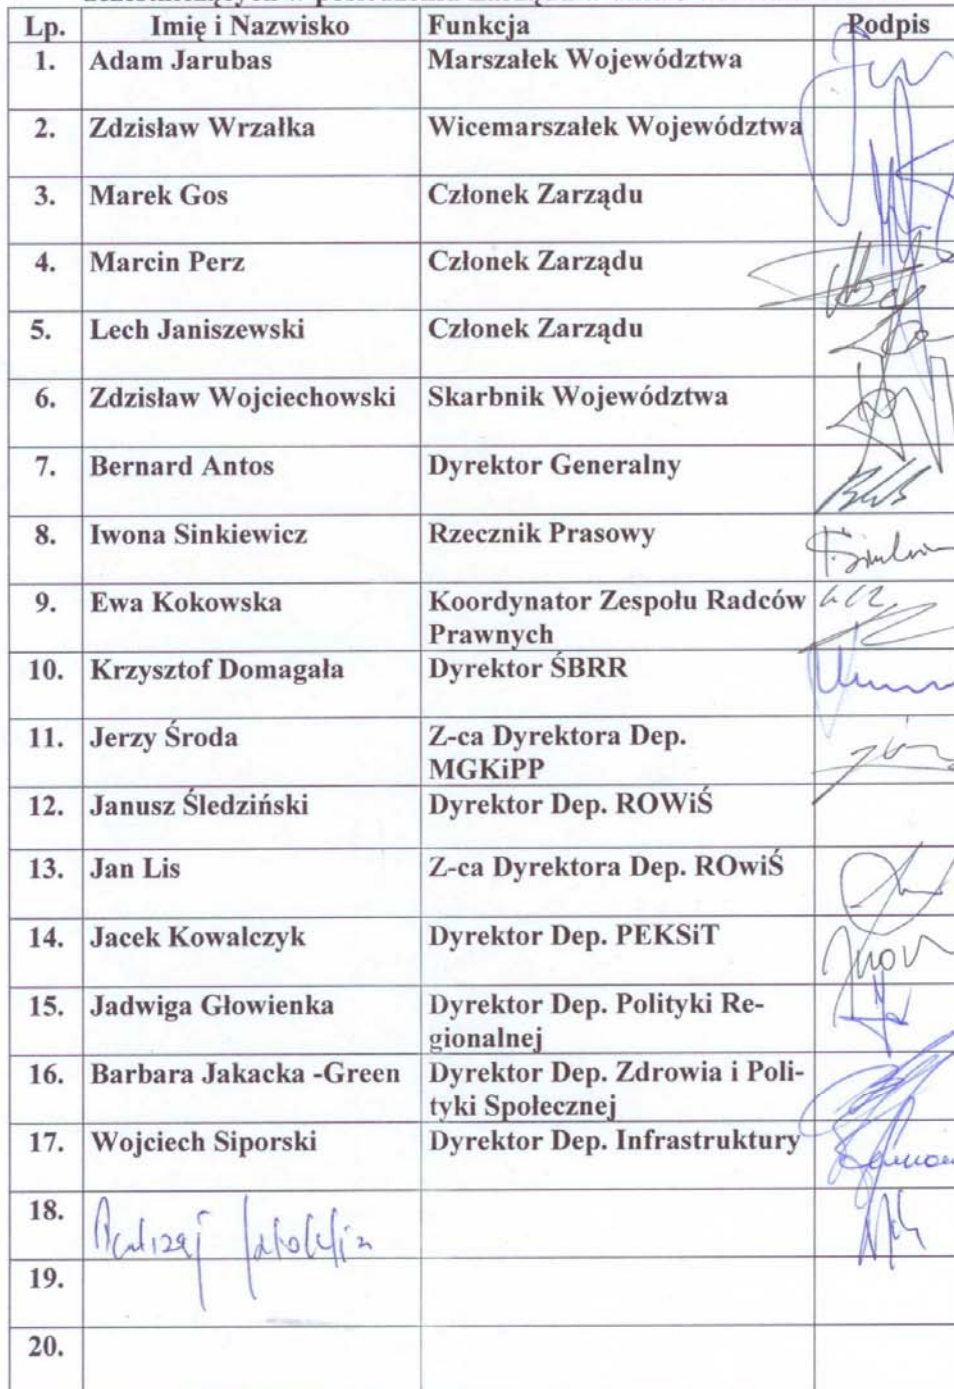 Lp. Imię i Nazwisko Funkcja Podpis
1. Adam Jarubas Marszałek Województwa
2. Zdzisław Wrzałka Wicemarszałek Województwa
3. Marek Gos Członek Zarządu
4. Marcin Perz Członek Zarządu
5. Lech Janiszewski Członek Zarządu
6. Zdzisław Wojciechowski Skarbnik Województwa
7. Bernard Antos Dyrektor Generalny
8. Iwona Sinkiewicz Rzecznik Prasowy
9. Ewa Kokowska Koordynator Zespołu Radców
Prawnych
10. Krzysztof Domagała Dyrektor ŚBRR
11. Jerzy Środa Z-ca Dyrektora Dep.
MGKiPP
12. Janusz Śledziński Dyrektor Dep. ROWiŚ
13. Jan Lis Z-ca Dyrektora Dep. ROwiŚ
14. Jacek Kowalczyk Dyrektor Dep. PEKSiT
15. Jadwiga Głowienka Dyrektor Dep. Polityki Re-
gionalnej
16. Barbara Jakacka -Green Dyrektor Dep. Zdrowia i Poli-
tyki Społecznej
17. Wojciech Siporski Dyrektor Dep. Infrastruktury
18. Andrzej
19.
20.